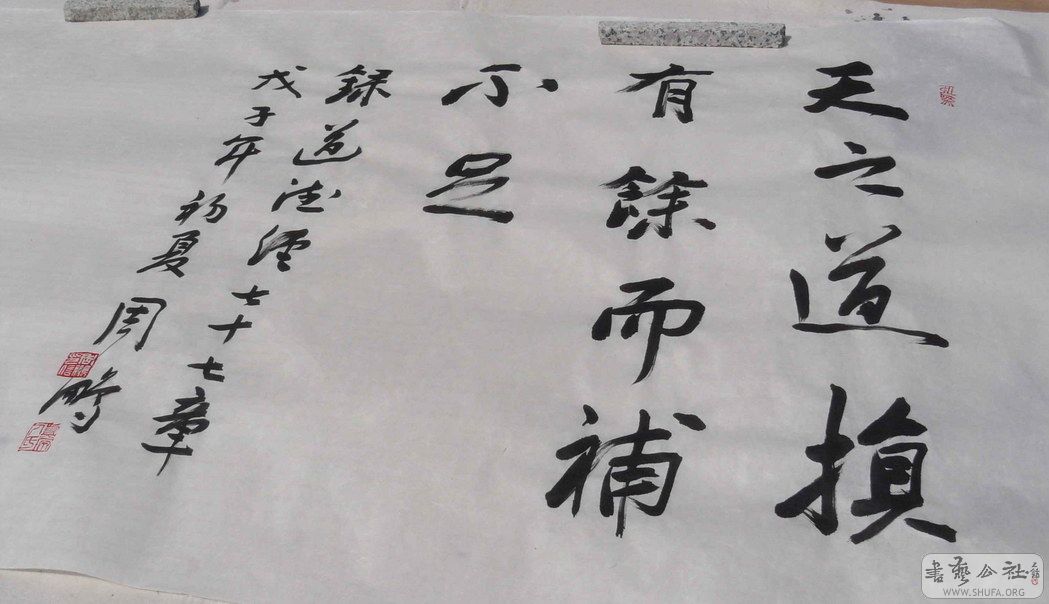 天之道損
有餘而補
不足
録道德經七十七章
戊子年初夏周鵬
書藝公社
WWW.SHUFA.ORG